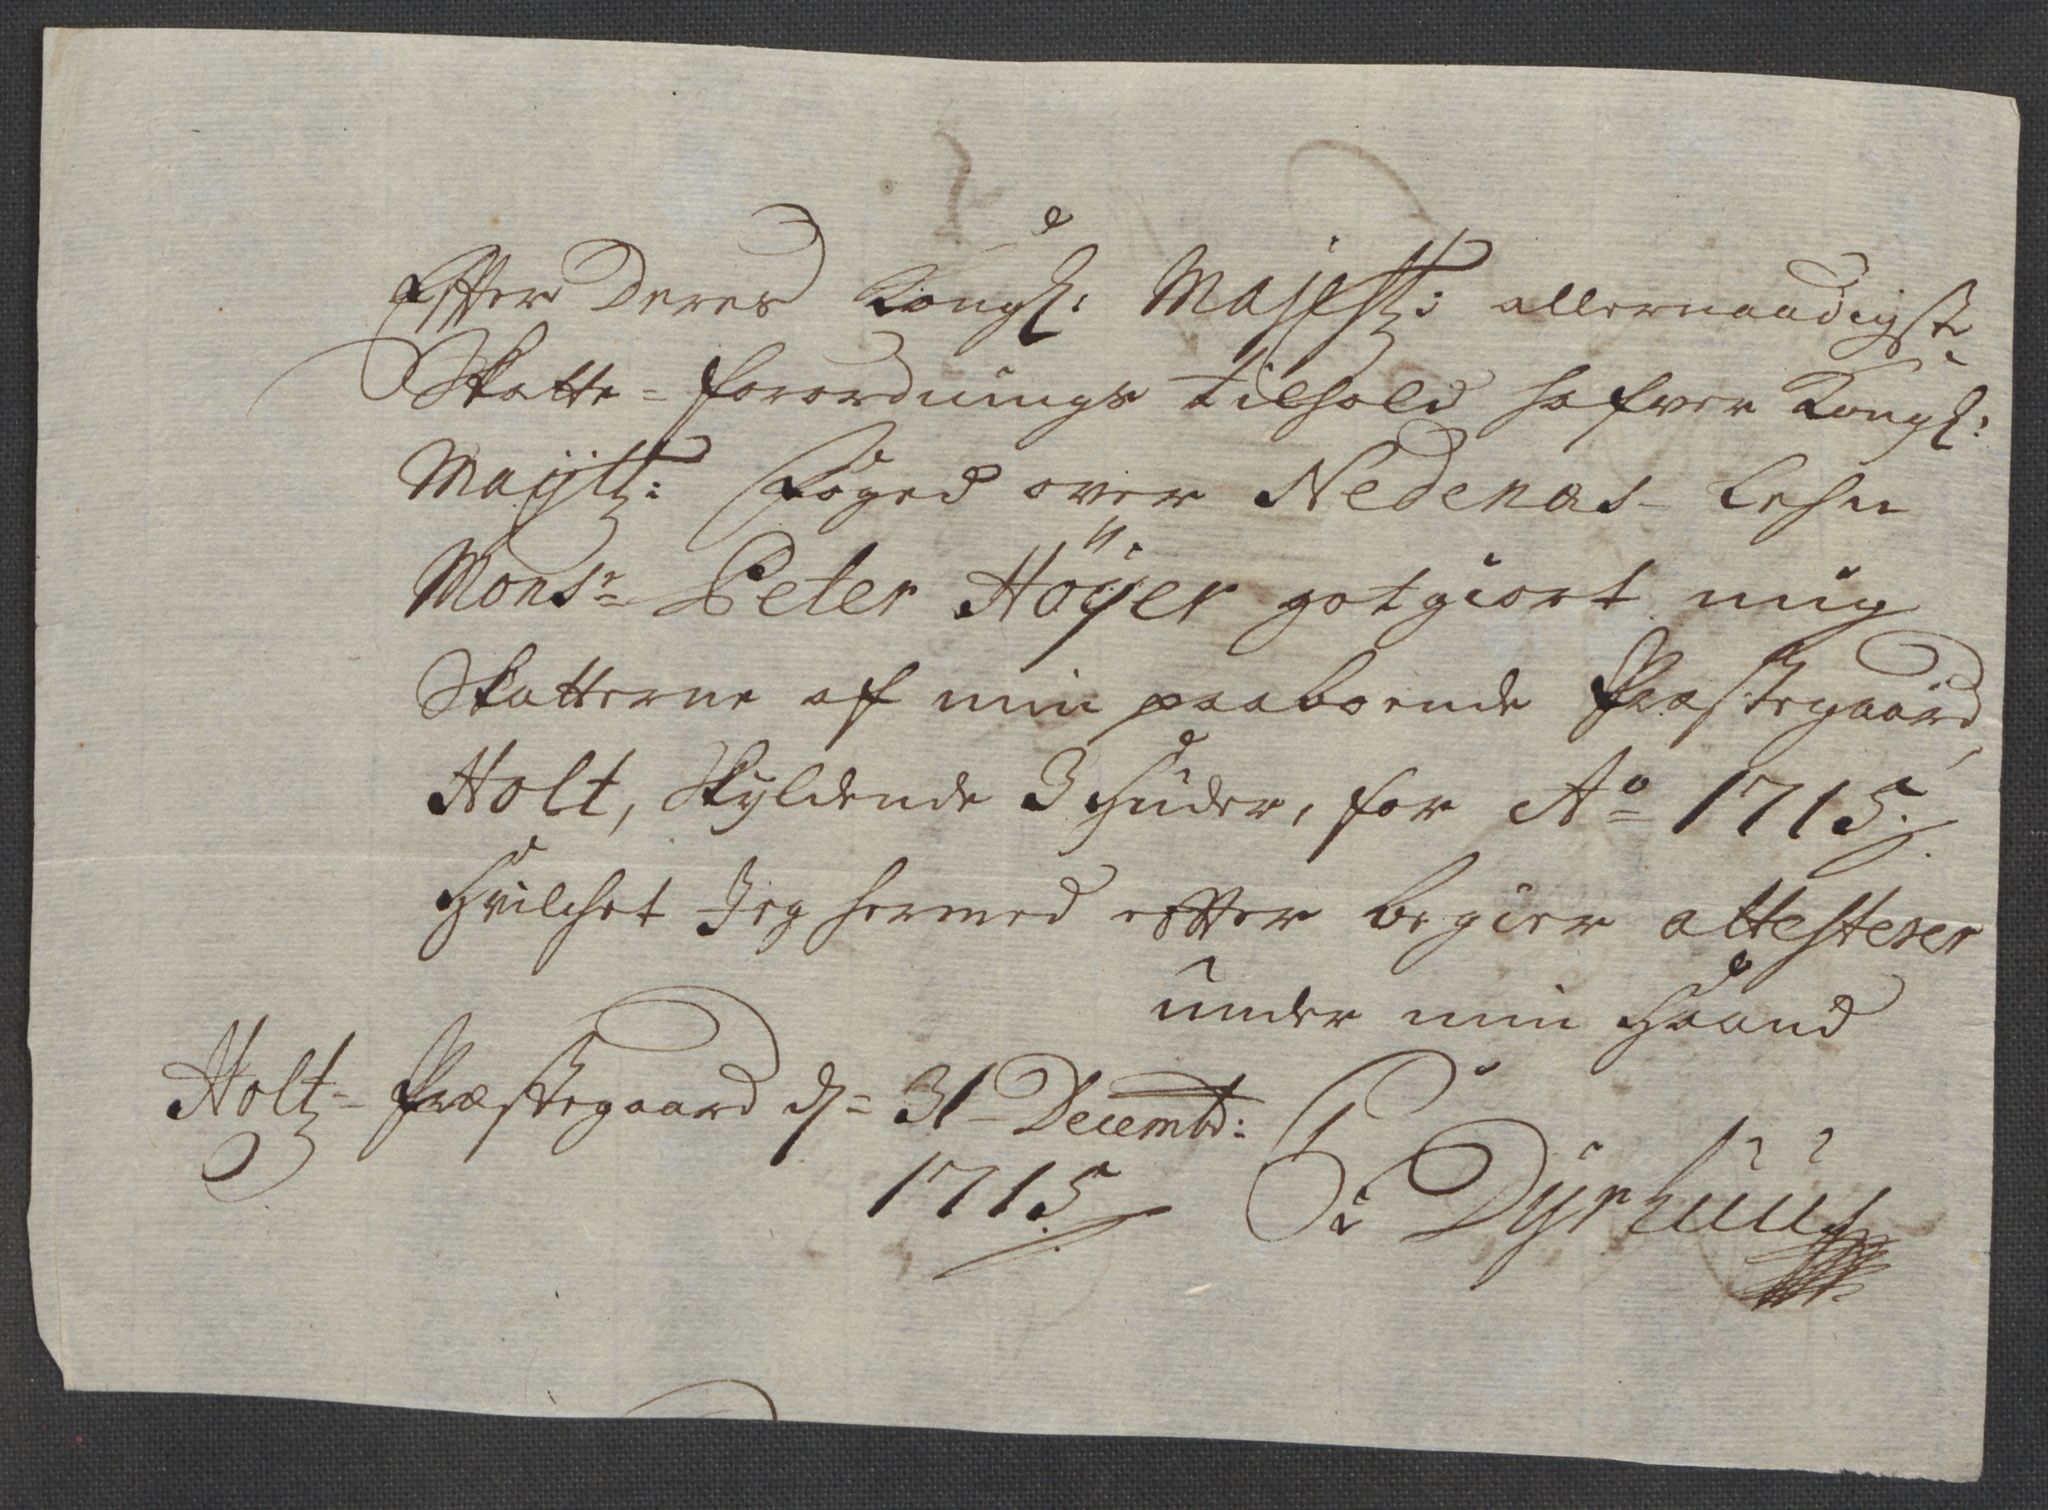 Effter Deres Kongl: Majestz: allernaadigste
Skatte-forordnings tilhold hafver Kongl:
Majstz: Foged over Nedenæs-Lehn
Monsr Peter Höÿer gotgiort mig
Skatterne af min paaboende Præstegaard
Holt, Skyldende 3 Huder, for Ao 1715.
Hvilchet Jeg hermed effter begier attesterer
under min Haand
Holtz-Præstegaard d. 31 Decembr:
1715
Dyrhuus